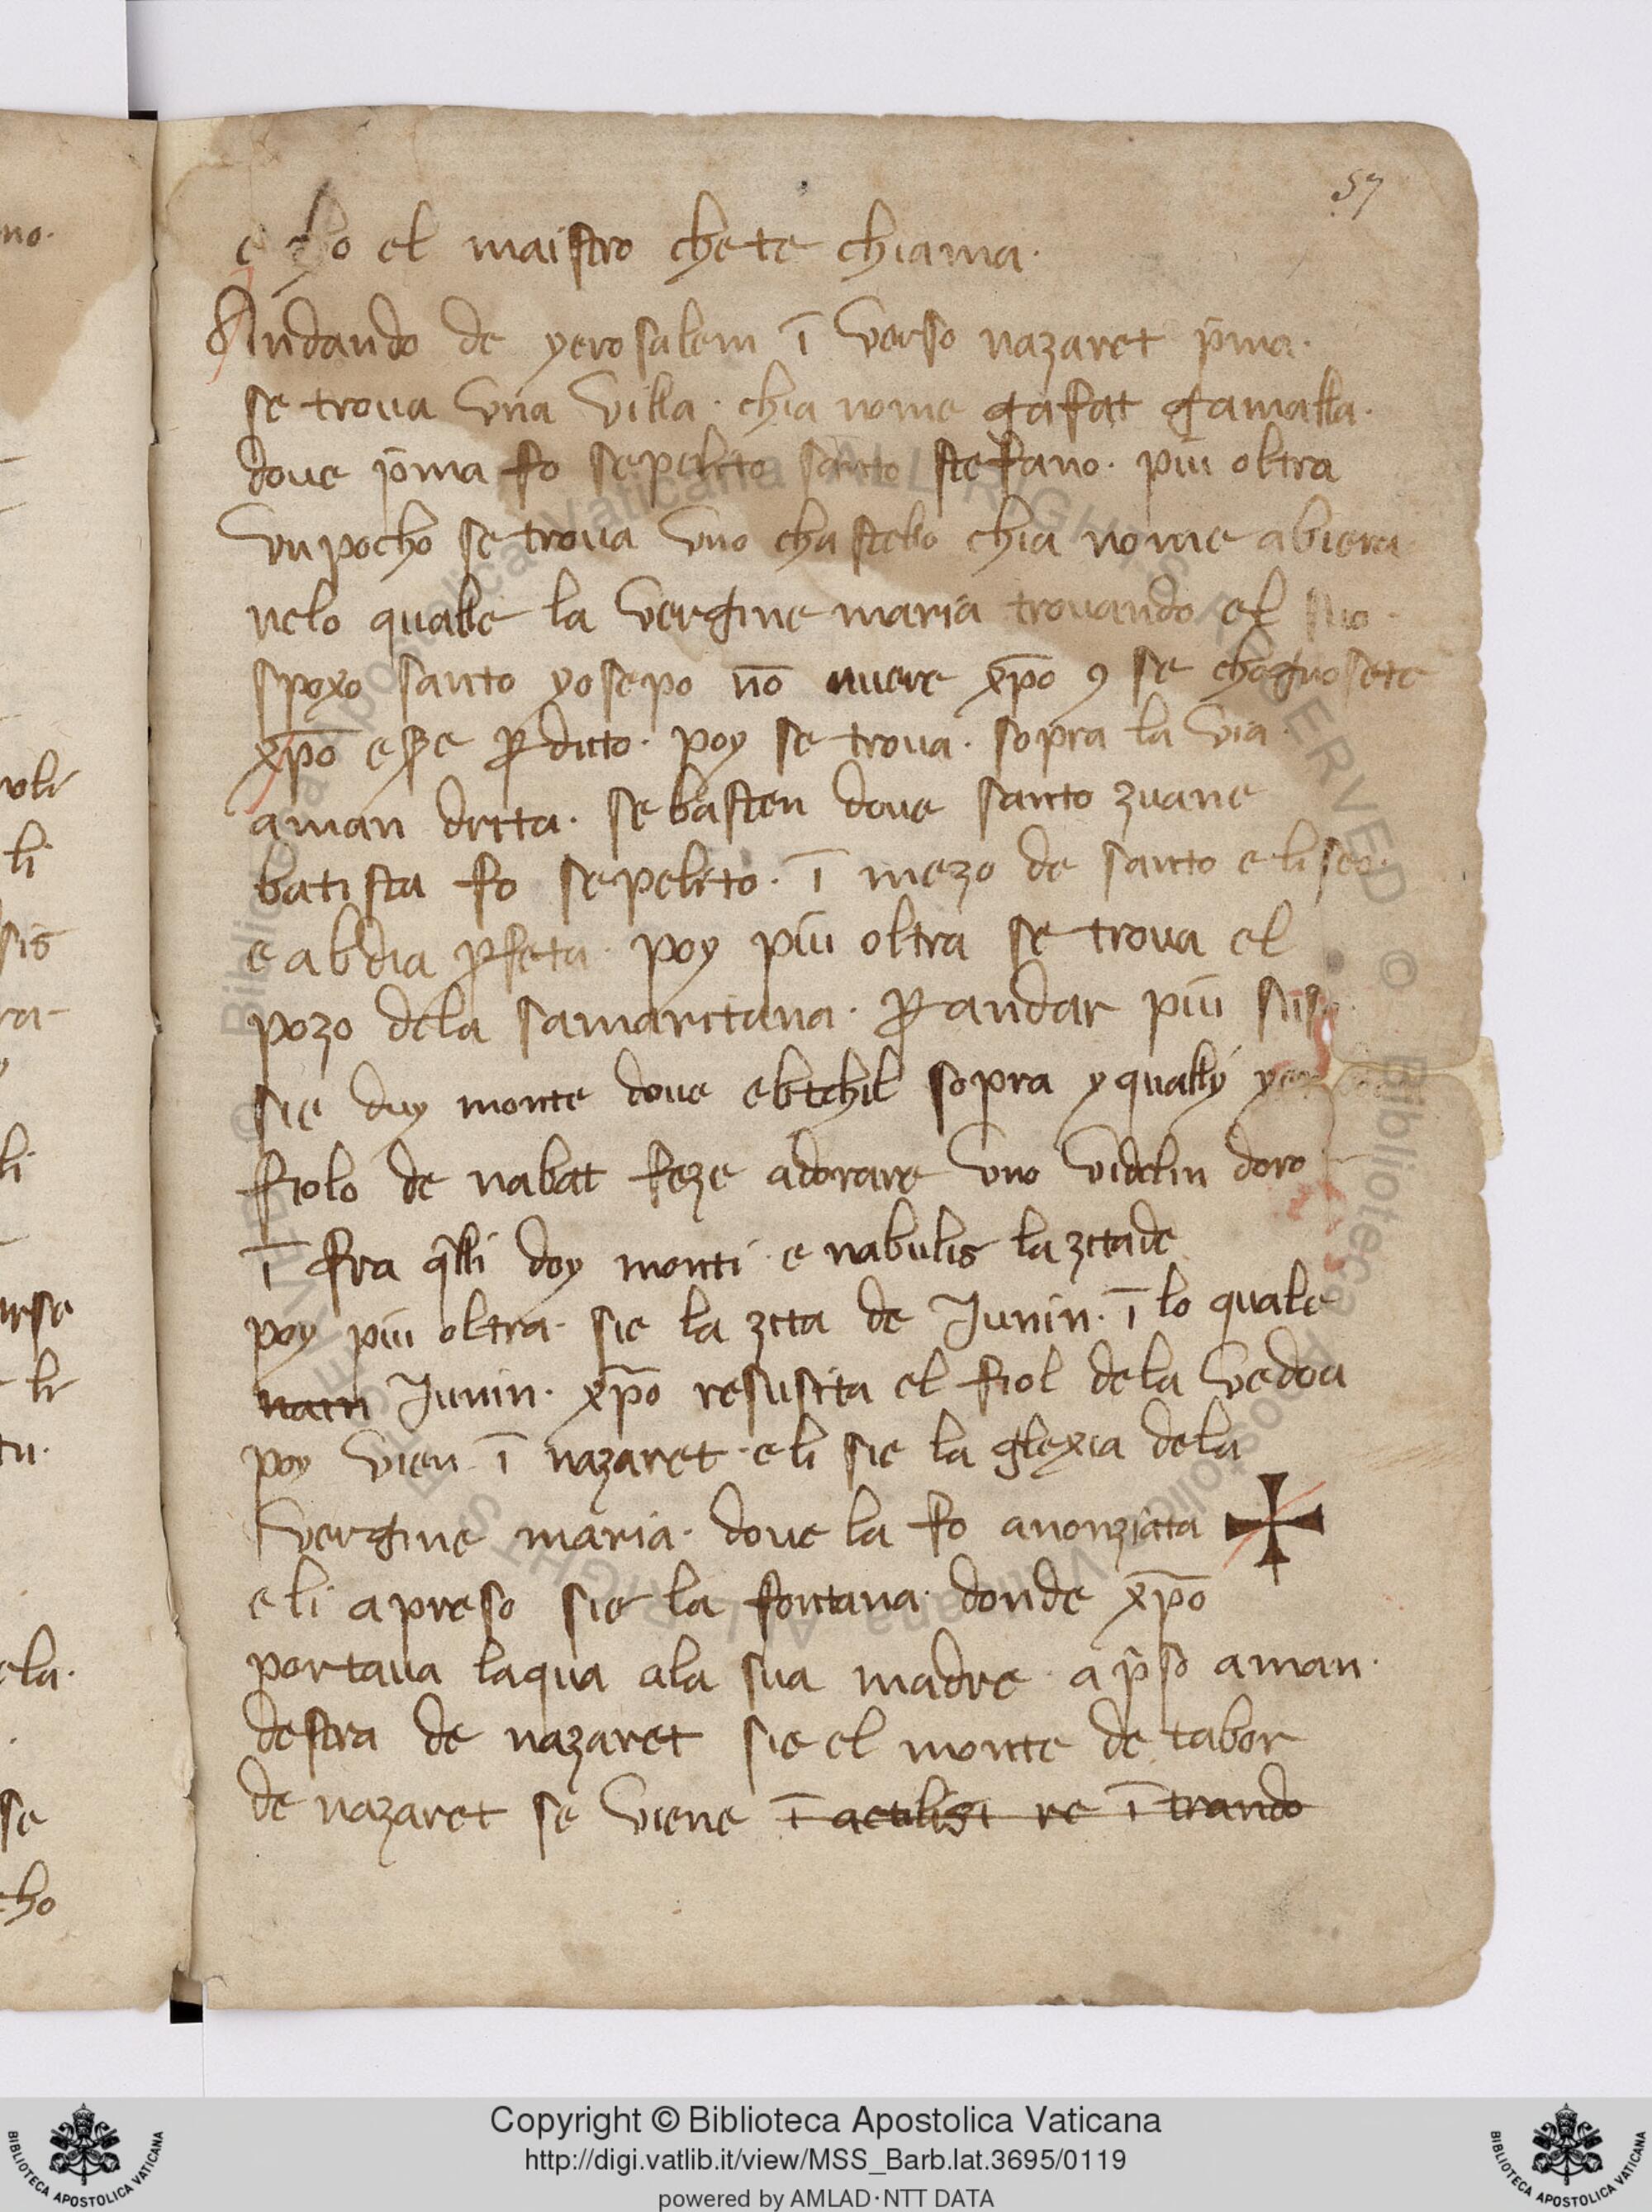 57
e cho el maistro che te chiama·
Andando de yerosalem ī verso nazaret p̄ma·
se trova una villa· chia nome gafat gamalla·
dove p̄ma fo sepelito santo stefano· piu oltra
un pocho se trova uno chastello chia nome abiera
nelo qualle la vergine maria trovando el suo·
spoxo santo yosepo nō avere xp̄o ꝯ se chognosete
xp̄o esse ꝑduto· poy se trova· sopra la via·
aman drita· sebasten dove santo zuane
batista fo sepelito· ī mezo de santo eliseo·
e abdia ꝓfeta· poy piu oltra se trova el
pozo dela samaritana· ꝑ andar piu suso
sie duy monte dove ebtchil sopra y qually
fiolo de nabat feze adorare uno videlin doro
ī fra q̄lli doy monti· e nabulis la zitade
poy piu oltra· sie la zita de Junin· ī lo quale
nain Junin· xp̄o resusita el fiol dela vedoa
poy vien ī nazaret· eli sie la glexia dela
vergine maria· dove la fo anonziata
eli apreso sie la fontana· donde xp̄o
portava laqua ala sua madre· ap̄so aman·
destra de nazaret sie el monte de tabor
de nazaret se viene ī re ī trando
Copyright © Biblioteca Apostolica Vaticana
http://digi.vatlib.it/view/MSS_Barb.lat.3695/0119
powered by AMLAD·NTT DATA
BIBLIOTECA APOSTOLICA VATICANA
BIBLIOTECA APOSTOLICA VATICANA